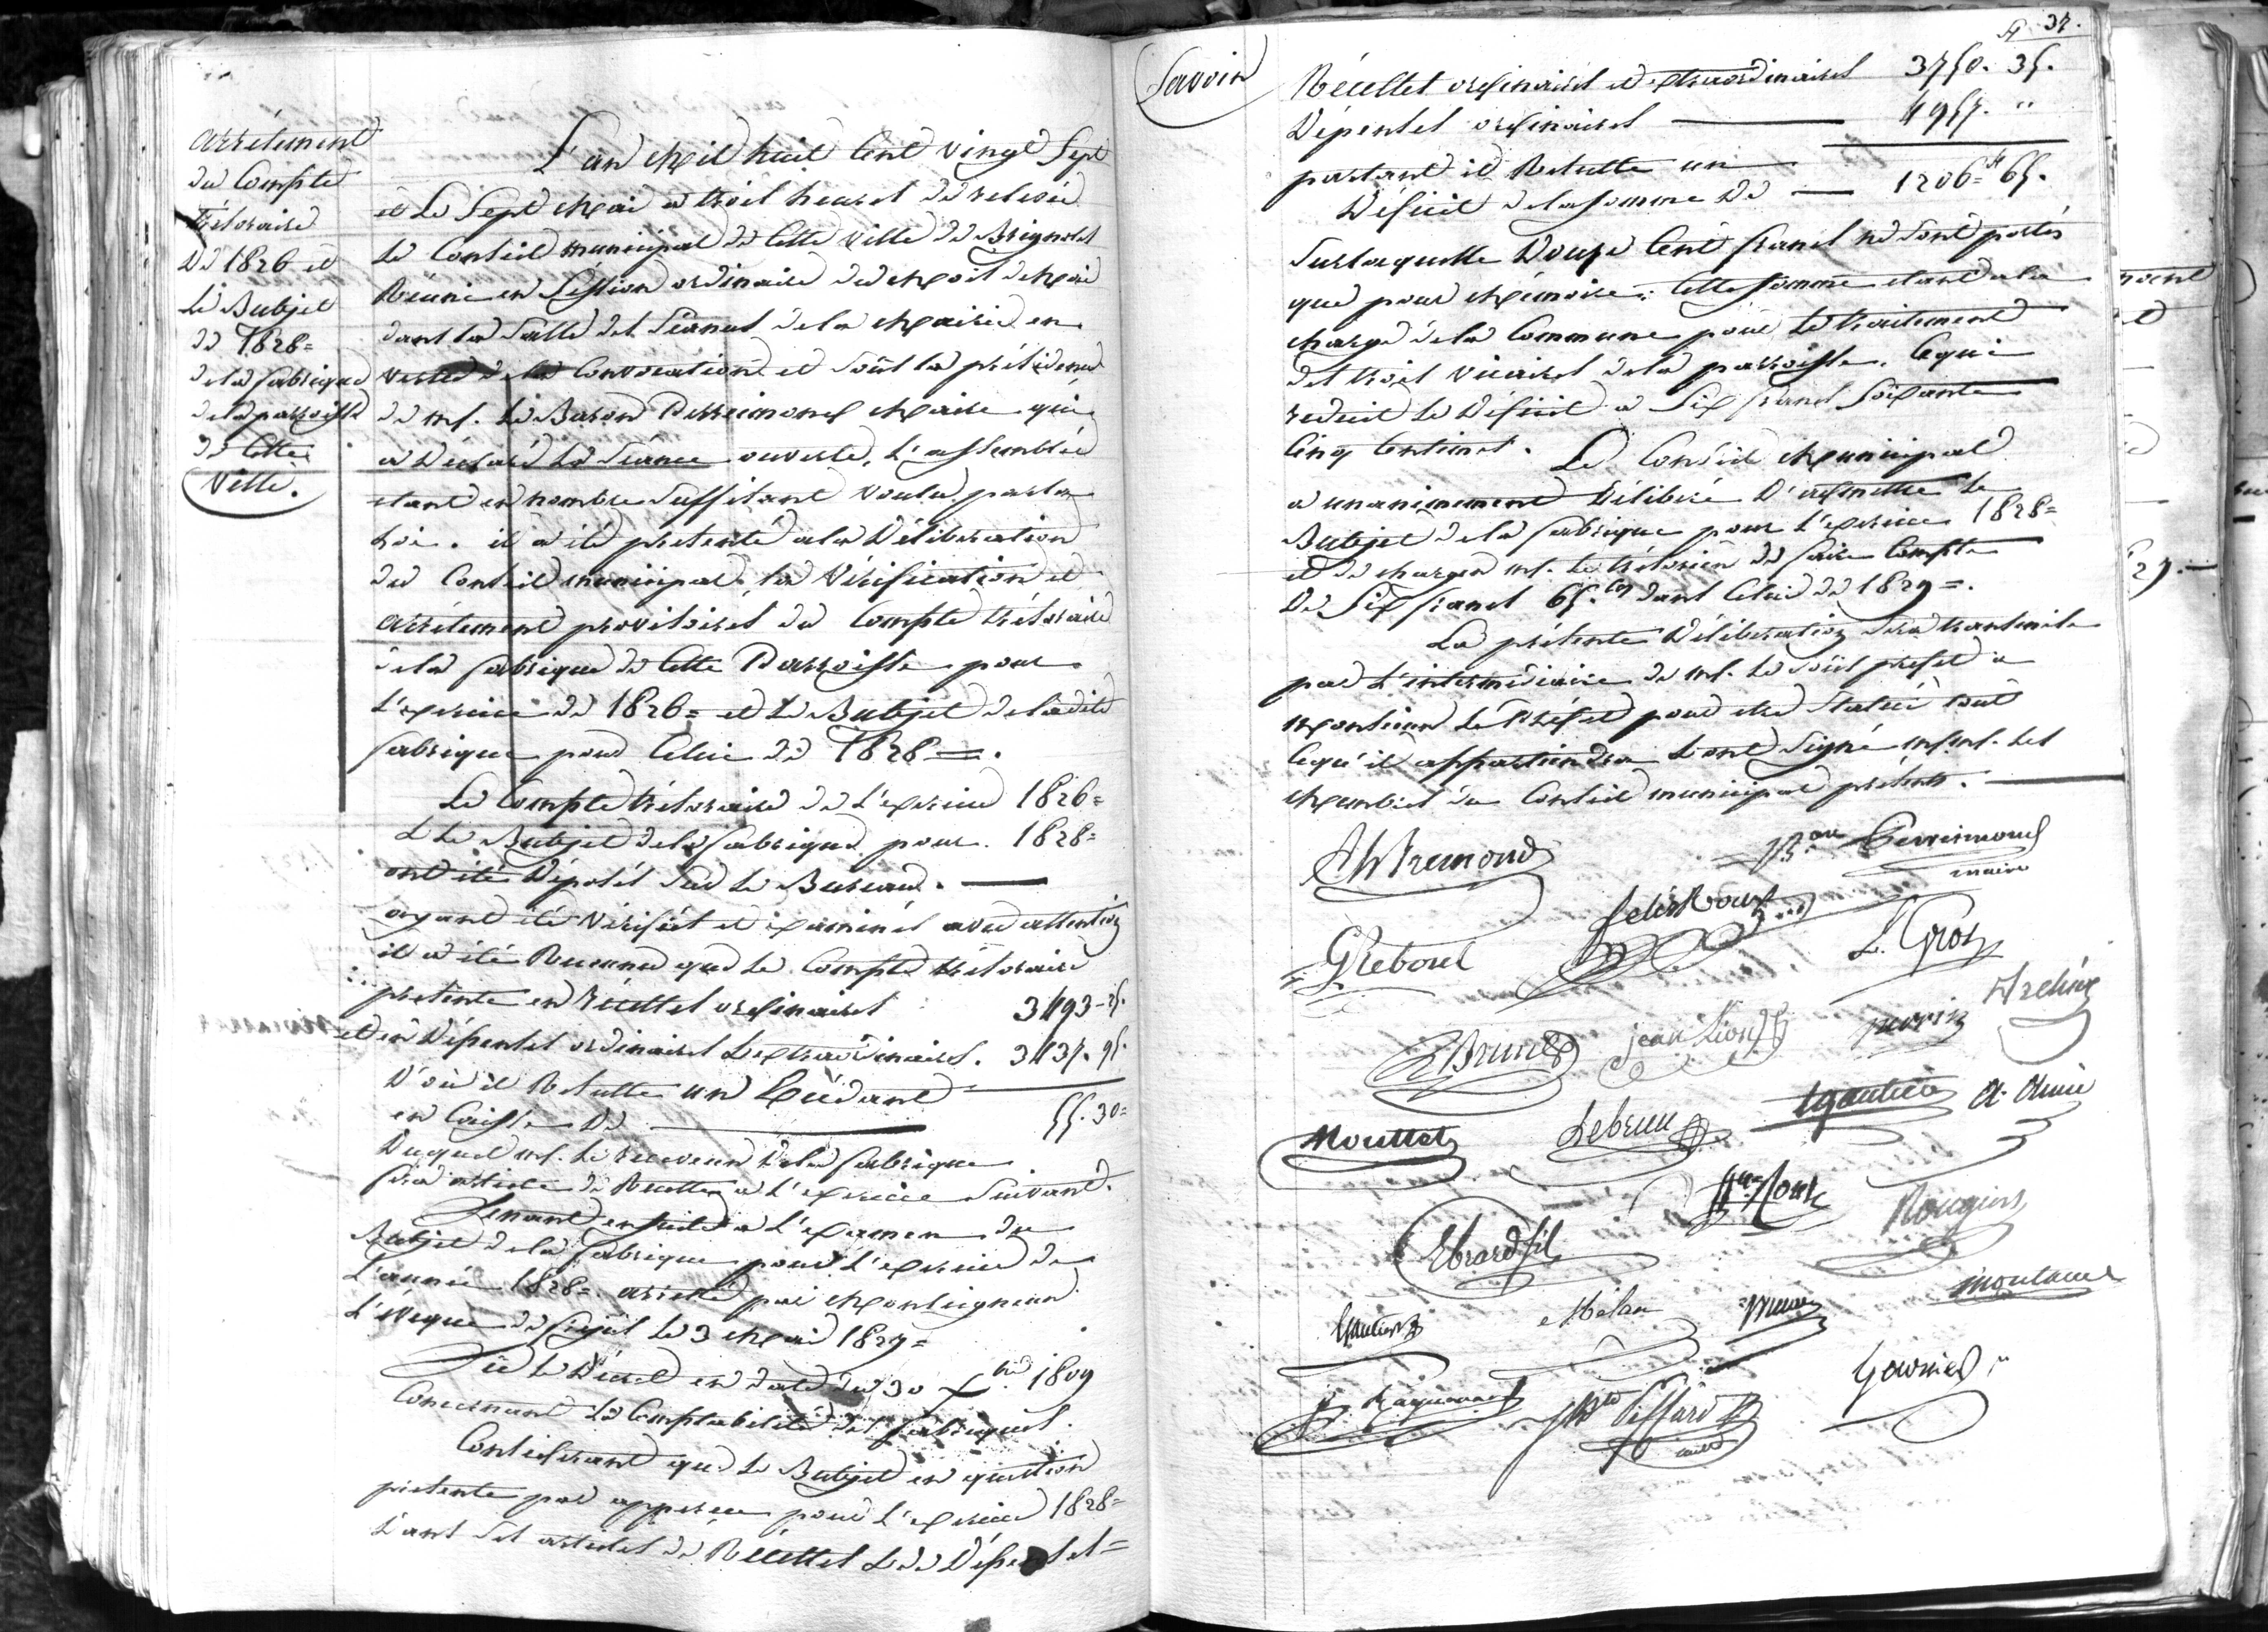 arrétement
du Compte
trésoraire
De 1826 et
Le Butjet
de 1828=
de la fabrique
de la parroisse
de Cette
Ville.
L'an Mil huit Cent vingt Sept
et Le Sept Mai a trois heures de relevée
Le Conseil municipal de Cette Ville de Brignoles
Réuni en Session ordinaire du Mois de Mai
dans la Salle des Séances de la Mairie en
vertu de la Convocation et Sous la présidence
de mr. Le Baron Perreimond Maire qui
a Déclaré La Séance ouverte, L'assemblée
etant en nombre Suffisant voulu par la
Loi. il a été présenté a la Délibération
du Conseil municipal, la Vérification et
arrétement provisoires du Compte trésoraire
de la fabrique de Cette Parroisse pour
L'exercice de 1826= et Le Butjet de la dite
fabrique pour Celui de 1828=.
Le Compte trésoraire de L'exercice 1826=
& Le Butjet de la fabrique pour 1828=
ont été Déposés Sur Le Bureau.
ayant été Vérifiés et examinés avec attention
il a été Reconnu que Le Compte trésoraire
présente en Récettes ordinaires 3493-25.
et en Dépenses ordinaires & extraordinaires. 3437.95.
D'où il Résulte un Excédant
en Caisse De 55.30=
Duquel mr. Le receveur De la fabrique
fera article de Recette a L'exercice Suivant.
Venant ensuite a L'examen du
Butjet de la fabrique pour L'exercice de
L'année 1828=. arretté par Monseigneur
L'évéque de fréjus Le 3 Mai 1827=
Vû Le Décret en date du 30 Xbre 1809
Concernant La Comptabilité des fabriques.
Considérant que Le Butjet en question
présente par apperçu pour L'exercice 1828=
Dans Ses articles de Récettes & de Dépenses=
37.
Savoir
Récettes ordinaires et extraordinaires 3750. 35.
Dépenses ordinaires 4957. "
partant il Résulte un
Déficit de la Somme De 1206=65.
Sur laquelle Douze Cent francs ne Sont portés
que pour Mémoire; Cette Somme etant a la
charge de la Commune pour Le traitement
des trois vicaires de la parroisse. Ce qui
reduit Le Déficit a Six francs Soixante
Cinq Centimes.
Le Conseil Municipal
a unanimement Délibéré D'admettre Le
Butjet de la fabrique pour L'exercice 1828=
et de charger mr. Le trésorier de faire Compte
De Six francs 65.Ces dans Celui de 1829=.
La présente Délibération Sera transmise
par L'intermédiaire de mr. Le Sous préfet a
Monsieur Le Préfet pour etre Statué tout
Ce qu'il appartiendra & ont Signé mrs. Les
Membres du Conseil municipal présents.
Fremond
Bon Perreimond
maire
G Reboul
felix Roux
L. Gros
Brunet
jean Lion
perrin
Mouttet
Lebrun
Gautier
Ebrard fils
Rougiers
Gautier
Melan
Brun
Montaud
Garnier